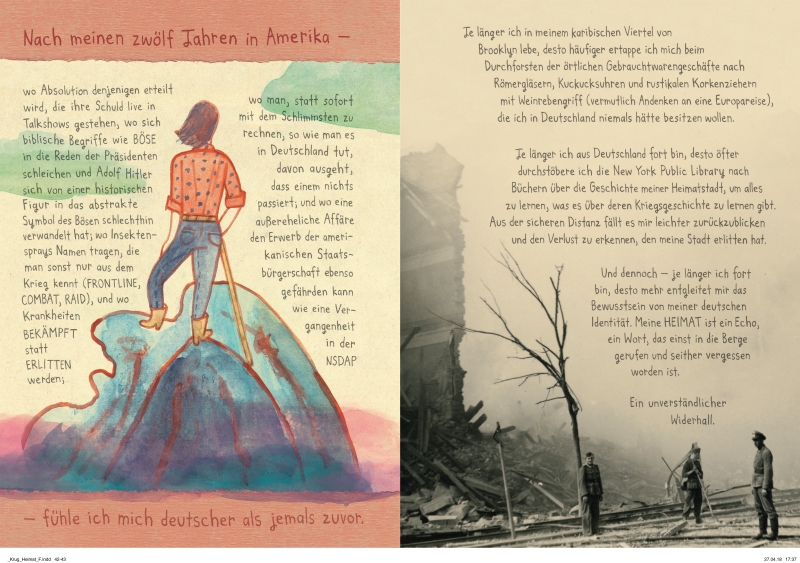 Nach meinen zwölf Jahren in Amerika —
wo Absolution denjenigen erteilt
wird, die ihre Schuld live in
Talkshows gestehen, wo sich
biblische Begriffe wie BÖSE
in die Reden der Präsidenten
schleichen und Adolf Hitler
sich von einer historischen
Figur in das abstrakte
Symbol des Bösen schlechthin
verwandelt hat; wo Insekten-
sprays Namen tragen, die
man sonst nur aus dem
Krieg kennt (FRONTLINE,
COMBAT, RAID), und wo
Krankheiten
BEKÄMPFT
statt
ERLITTEN
werden;
wo man, statt sofort
mit dem Schlimmsten zu
rechnen, so wie man es
in Deutschland tut,
davon ausgeht,
dass einem nichts
passiert; und wo eine
außereheliche Affäre
den Erwerb der ameri-
kanischen Staats-
bürgerschaft ebenso
gefährden kann
wie eine Ver-
gangenheit
in der
NSDAP
— fühle ich mich deutscher als jemals zuvor.
Je länger ich in meinem karibischen Viertel von
Brooklyn lebe, desto häufiger ertappe ich mich beim
Durchforsten der örtlichen Gebrauchtwarengeschäfte nach
Römergläsern, Kuckucksuhren und rustikalen Korkenziehern
mit Weinrebengriff (vermutlich Andenken an eine Europareise),
die ich in Deutschland niemals hätte besitzen wollen.
Je länger ich aus Deutschland fort bin, desto öfter
durchstöbere ich die New York Public Library nach
Büchern über die Geschichte meiner Heimatstadt, um alles
zu lernen, was es über deren Kriegsgeschichte zu lernen gibt.
Aus der sicheren Distanz fällt es mir leichter zurückzublicken
und den Verlust zu erkennen, den meine Stadt erlitten hat.
Und dennoch — je länger ich fort
bin, desto mehr entgleitet mir das
Bewusstsein von meiner deutschen
Identität. Meine HEIMAT ist ein Echo,
ein Wort, das einst in die Berge
gerufen und seither vergessen
worden ist.
Ein unverständlicher
Widerhall.
_Krug_Heimat_F.indd 42-43
27.04.18 17:37